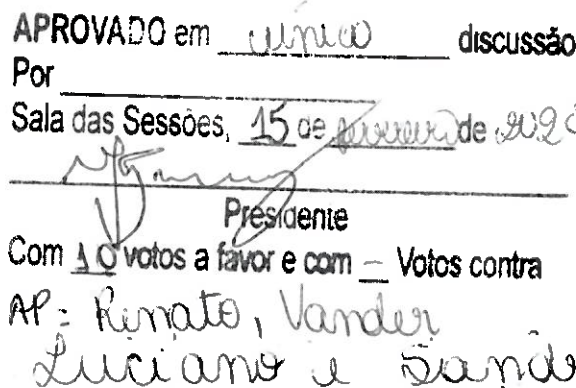 APROVADO em única discussão
Por
Sala das Sessões, 15 de fevereiro de
Presidente
Com 10 votos a favor e com – Votos contra
AP: Renato, Vander
Luciano e